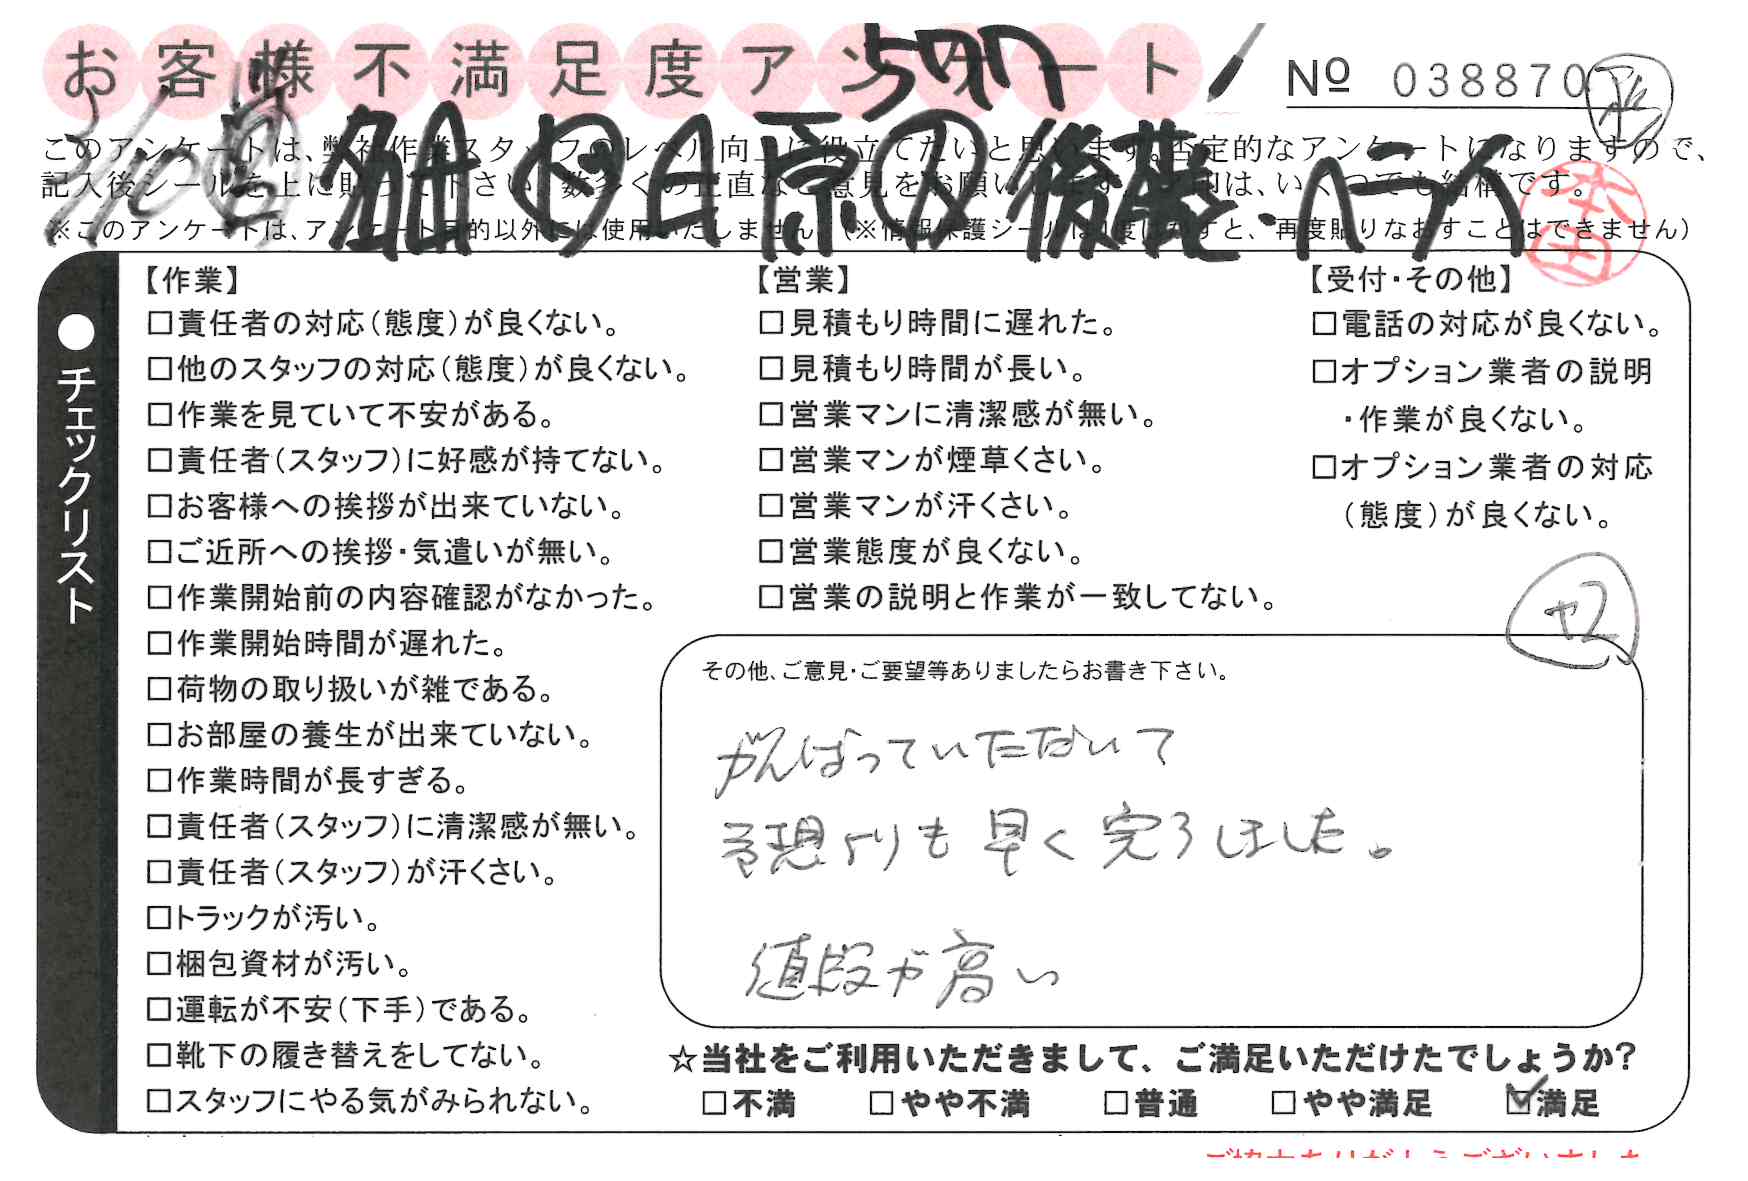 お客様不満足度アンケート
No 038870
このアンケートは、弊社作業スタッフのレベル向上に役立てたいと思います。否定的なアンケートになりますので、
記入後シールを上に貼って下さい。数多くの正直なご意見をお願いします。 印は、いくつでも結構です。
※このアンケートは、アンケート目的以外には使用いたしません。(※情報保護シールは1度はがすと、再度貼りなおすことはできません)
本田
●チェックリスト
【作業】
□責任者の対応(態度)が良くない。
□他のスタッフの対応(態度)が良くない。
□作業を見ていて不安がある。
□責任者(スタッフ)に好感が持てない。
□お客様への挨拶が出来ていない。
□ご近所への挨拶・気遣いが無い。
□作業開始前の内容確認がなかった。
□作業開始時間が遅れた。
□荷物の取り扱いが雑である。
□お部屋の養生が出来ていない。
□作業時間が長すぎる。
□責任者(スタッフ)に清潔感が無い。
□責任者(スタッフ)が汗くさい。
□トラックが汚い。
□梱包資材が汚い。
□運転が不安(下手)である。
□靴下の履き替えをしてない。
□スタッフにやる気がみられない。
【営業】
□見積もり時間に遅れた。
□見積もり時間が長い。
□営業マンに清潔感が無い。
□営業マンが煙草くさい。
□営業マンが汗くさい。
□営業態度が良くない。
□営業の説明と作業が一致してない。
【受付・その他】
□電話の対応が良くない。
□オプション業者の説明
・作業が良くない。
□オプション業者の対応
(態度)が良くない。
その他、ご意見・ご要望等ありましたらお書き下さい。
がんばっていただいて
予想よりも早く完了しました。
値段が高い
☆当社をご利用いただきまして、ご満足いただけたでしょうか?
□不満 □やや不満 □普通 □やや満足 ☑満足
ご協力ありがとうございました